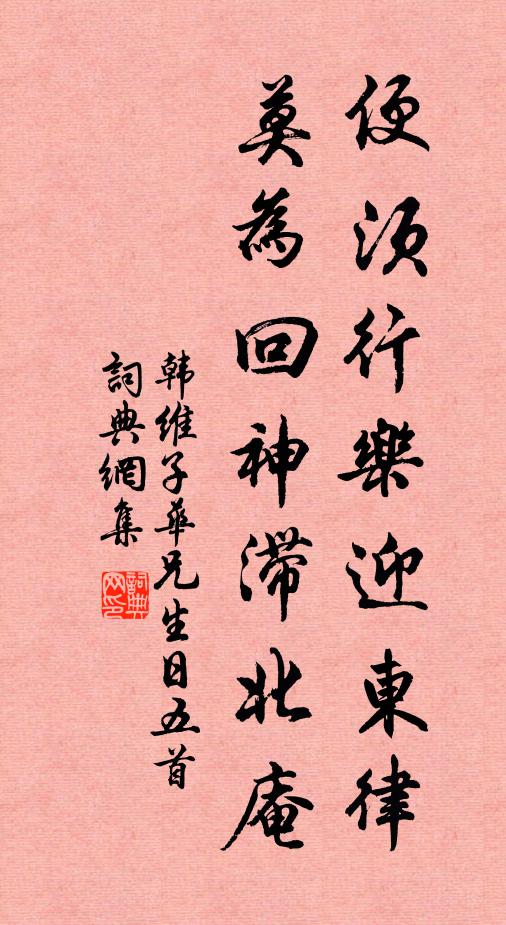 便須行樂迎東律
莫為回神滯北庵
韩维子華兄生日五首
詞典網集
詞典网印